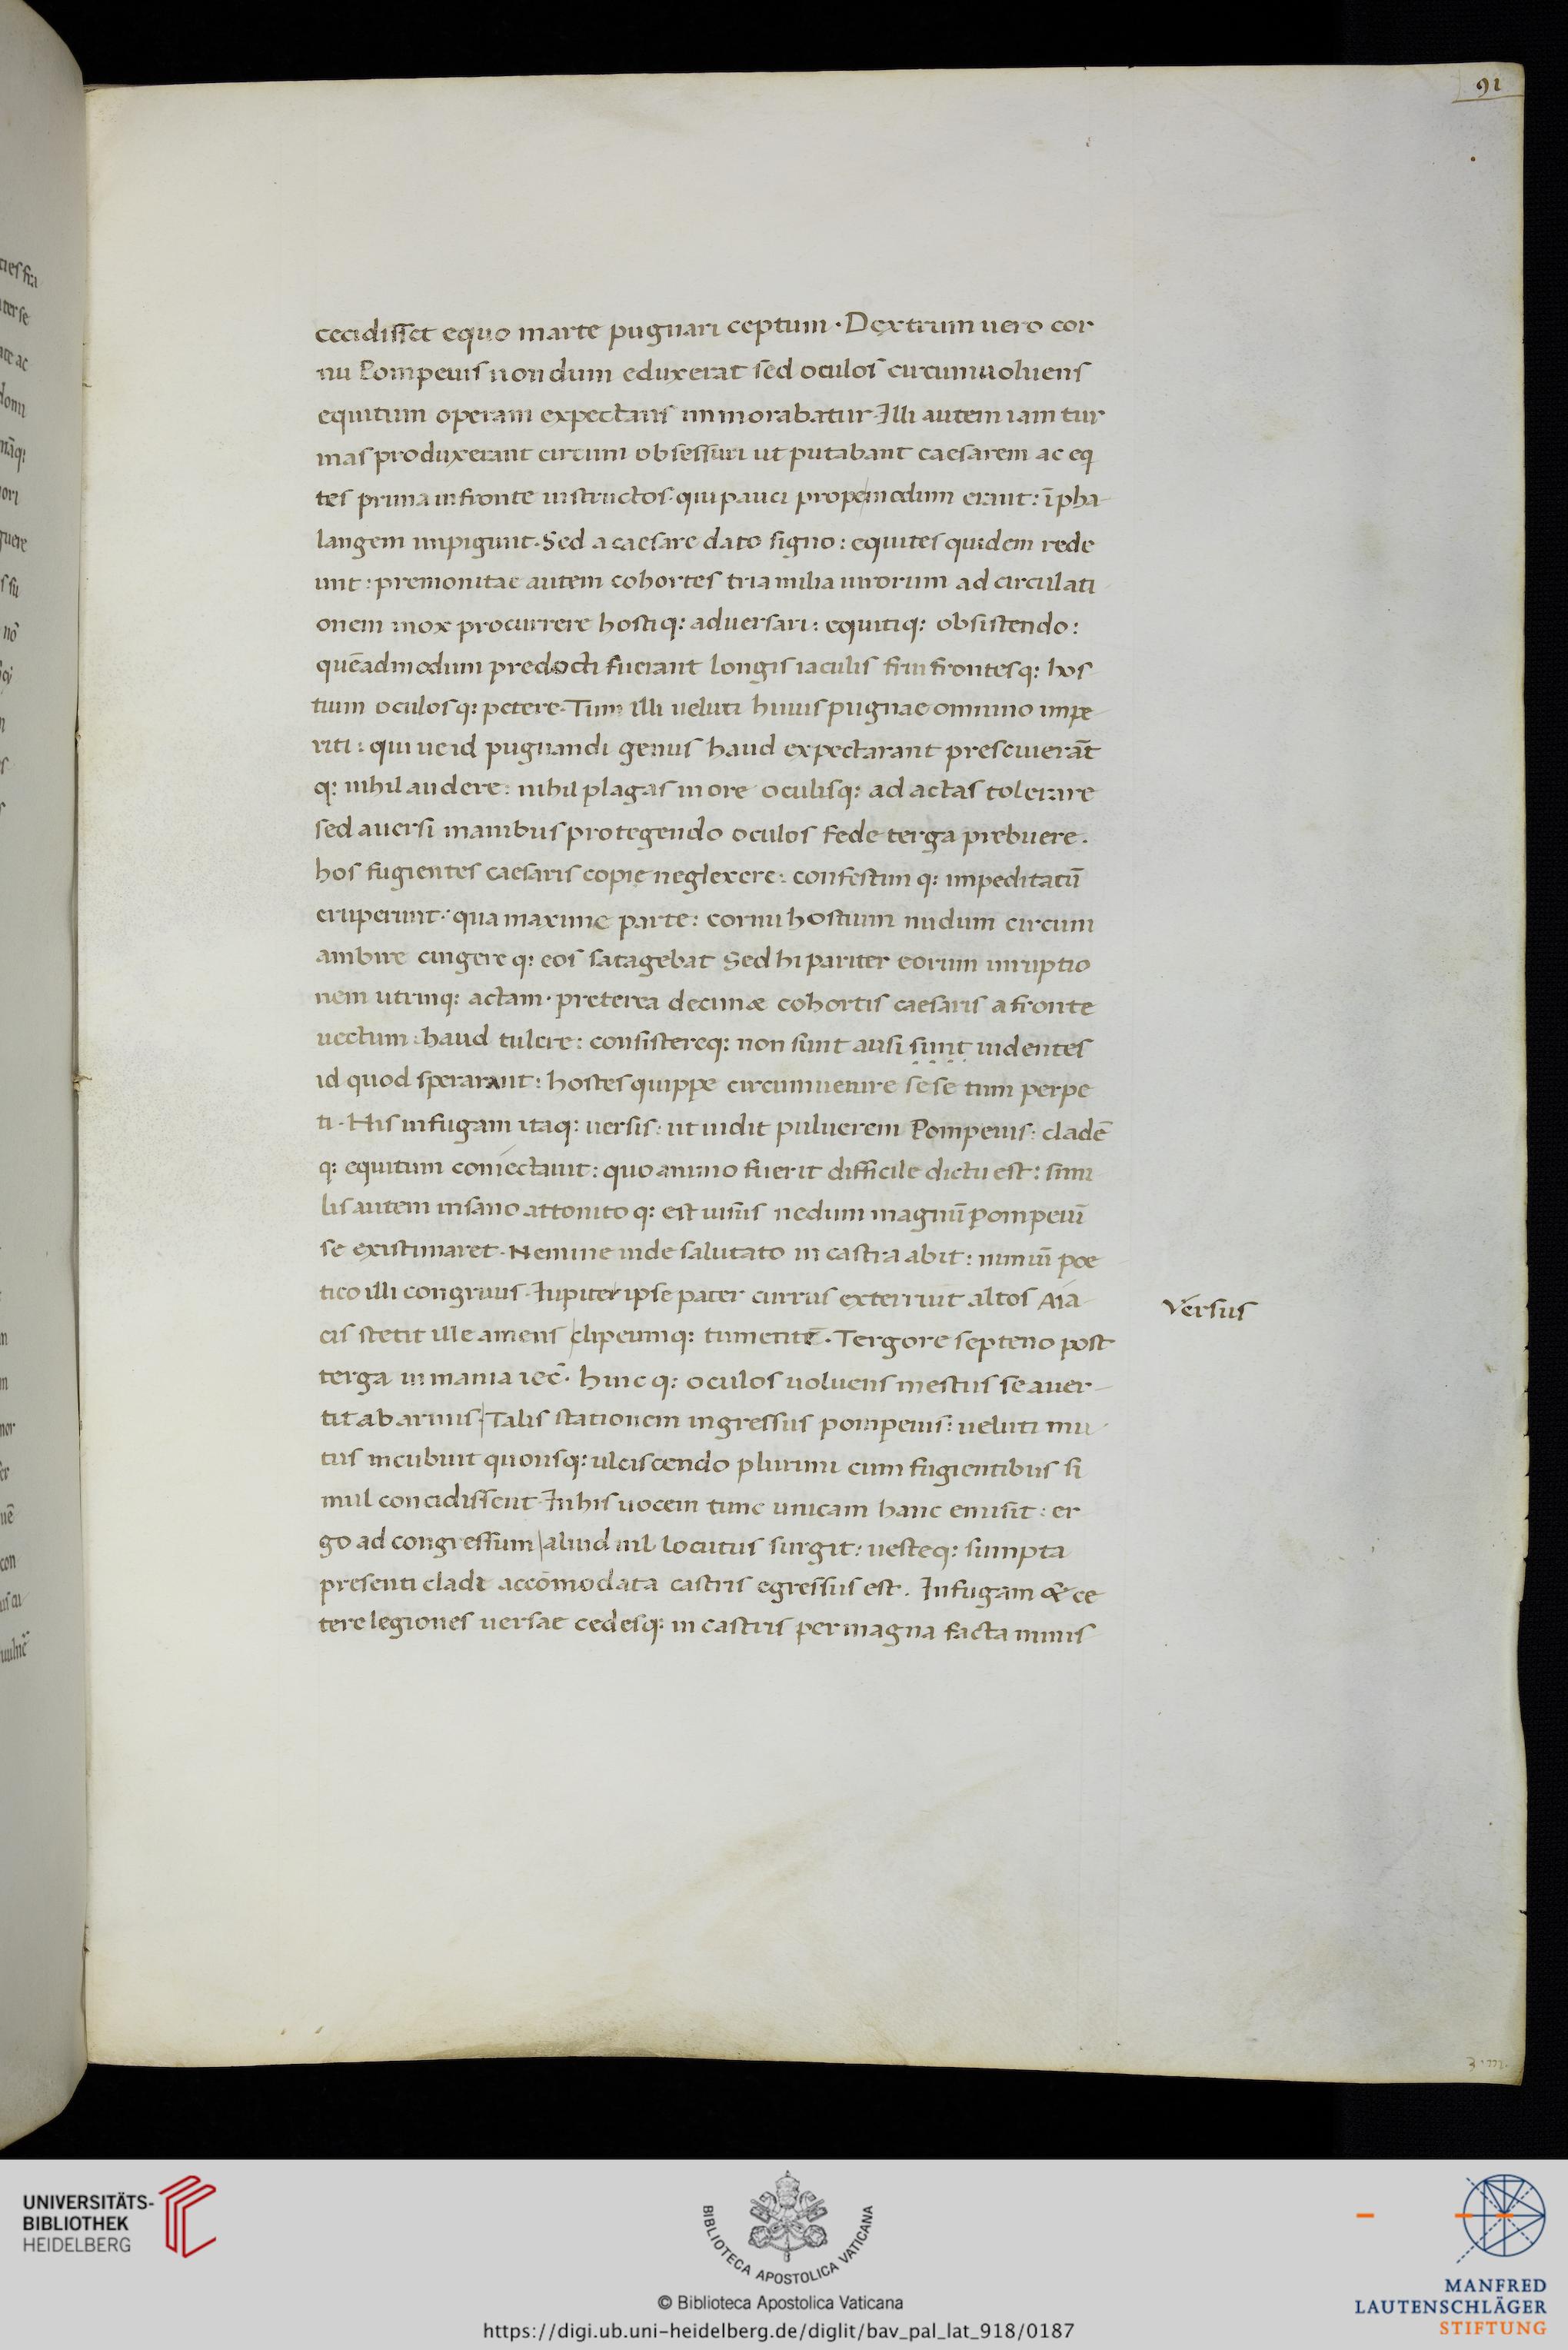 91
cecidisset equo marte pugnari ceptum · Dextrum uero cor
nu Pompeius nondum eduxerat sed oculos circumuoluens
equitum operam expectans immorabatur · Illi autem iam tur
mas produxerant circum obsessuri ut putabant caesarem ac eq
tes prima in fronte instructos · qui pauci propemodum erant : ī pha-
langem impigunt · Sed a caesare dato signo : equites quidem rede
unt : premonitae autem cohortes tria milia uirorum ad circulati
onem mox procurrere hostiq: aduersari : equitiq: obsistendo :
quēadmodum predocti fuerant longis iaculis friri frontesq: hos
tium oculosq: petere · Tum illi ueluti huius pugnae omnino impe-
riti : qui ue id pugnandi genus haud expectarant presciuerāt
q: nihil audere : nihil plagas in ore oculisq: ad actas tolerare
sed auersi manibus protegendo oculos fede terga prebuere .
hos fugientes caesaris copie neglexere : confestim q: impeditatū
eruperunt · qua maxime parte : cornu hostium nudum circum
ambire cingere q: eos satagebat Sed hi pariter eorum inruptio
nem utrinq: actam · preterea decimæ cohortis caesaris a fronte
uectum : haud tulere : consistereq: non sunt ausi sunt uidentes
id quod sperarant : hostes quippe circumuenire se se tum perpe
ti · His in fugam itaq: uersis : ut uidit puluerem Pompeius : cladē
q: equitum coniectauit : quo animo fuerit difficile dictu est : simi
lis autem insano attonito q: est uisus nedum magnū pompeiū
se existimaret · Nemine inde salutato in castra abit : nimiū poe
tico illi congruus · Iupiter ipse pater currus exterruit altos Aia-
cis stetit ille amens clipeumq: tumentē · Tergore septeno post
terga inmania iec̄ · hinc q: oculos uoluens mestus se auer-
tit ab armis | Talis stationem ingressus pompeius : ueluti mu-
tus incubuit quousq: ulciscendo plurimi cum fugientibus si
mul concidissent · In his uocem tunc unicam hanc emisit : er
go ad congressum | aliud nil locutus surgit : uesteq: sumpta
presenti cladi accōmodata castris egressus est . In fugam & ce
tere legiones uersae cedesq: in castris permagna facta nimis
Versus
3 · m ·
UNIVERSITÄTS-
BIBLIOTHEK
HEIDELBERG
BIBLIOTECA APOSTOLICA VATICANA
© Biblioteca Apostolica Vaticana
https://digi.ub.uni-heidelberg.de/diglit/bav_pal_lat_918/0187
MANFRED
LAUTENSCHLÄGER
STIFTUNG